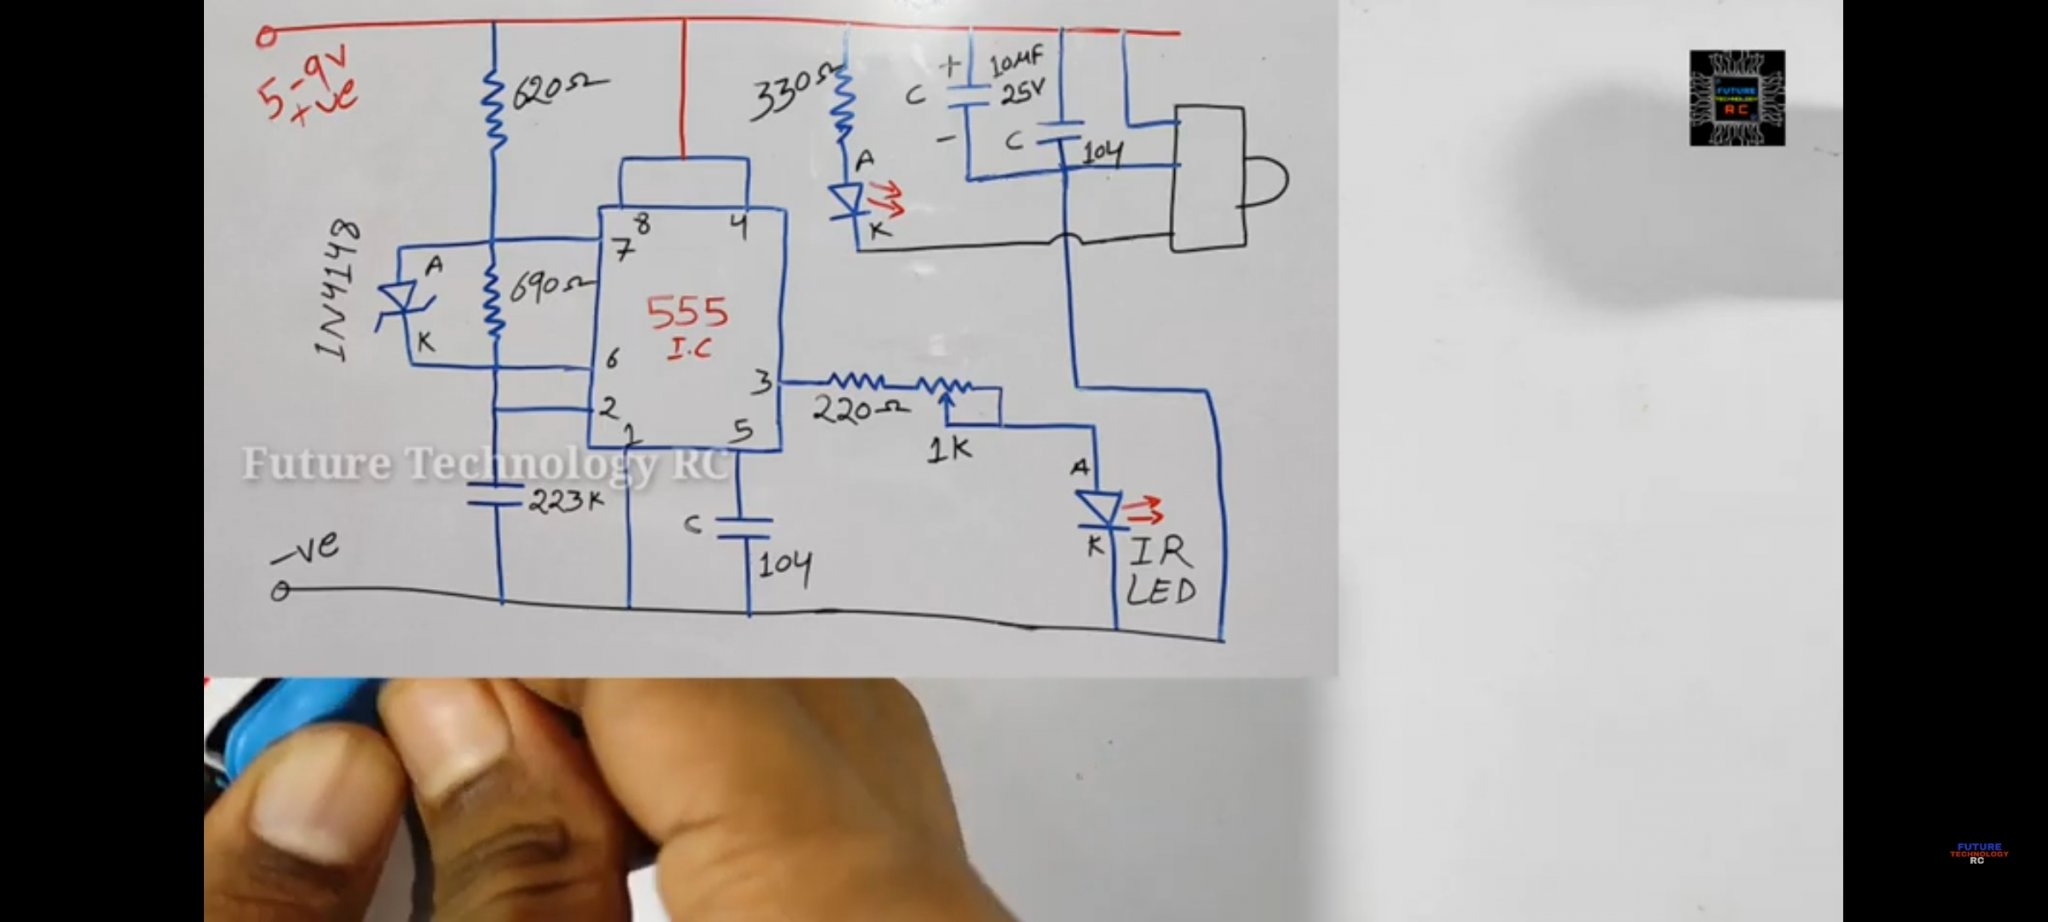 5-9V
+ve
620Ω
330Ω
+
10µF
C
25V
-
C
104
A
K
1N4148
A
K
690Ω
8
4
7
555
I.C
6
3
2
1
5
220Ω
1K
223K
C
104
-ve
A
K
IR
LED
Future Technology RC
FUTURE
TECHNOLOGY
RC
FUTURE
TECHNOLOGY
RC